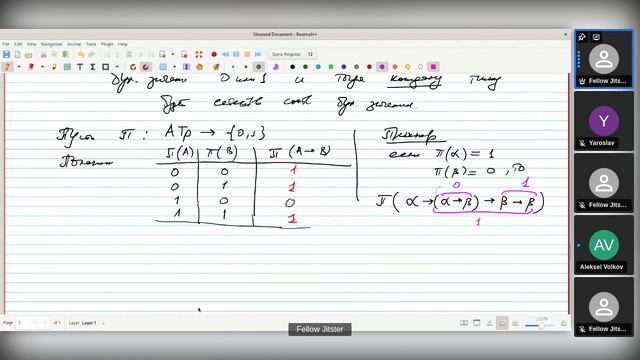 Unsaved Document - Xournal++
File Edit View Navigation Journal Tools Plugin Help
Sans Regular 12
0 или 1 и тогда каждому типу
будет
Пусть Π : ATp → {0,1}
Положим
Π(A) Π(B) Π(A→B)
0 0 1
0 1 1
1 0 0
1 1 1
Пример
если Π(α) = 1
Π(β) = 0, то
0 1
Π(α→(α→β)→β→β)
1
Page 1 of 1 Layer: Layer 1
Fellow Jitster
Fellow Jitster
Y
Yaroslav
Fellow Jits...
AV
Aleksei Volkov
Fellow Jits...